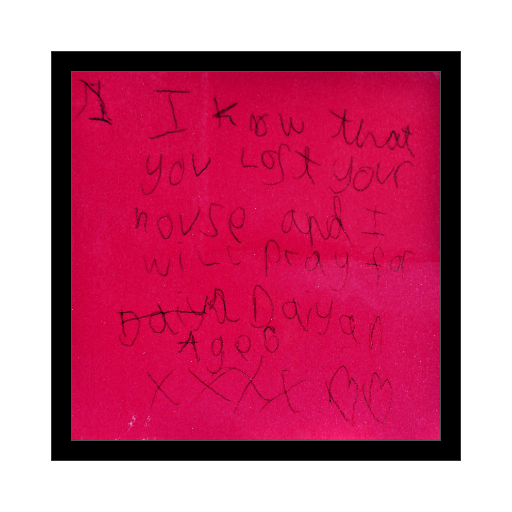 I know that
you Lost your
house and I
will pray for
Dayan
Age 6
XXXX